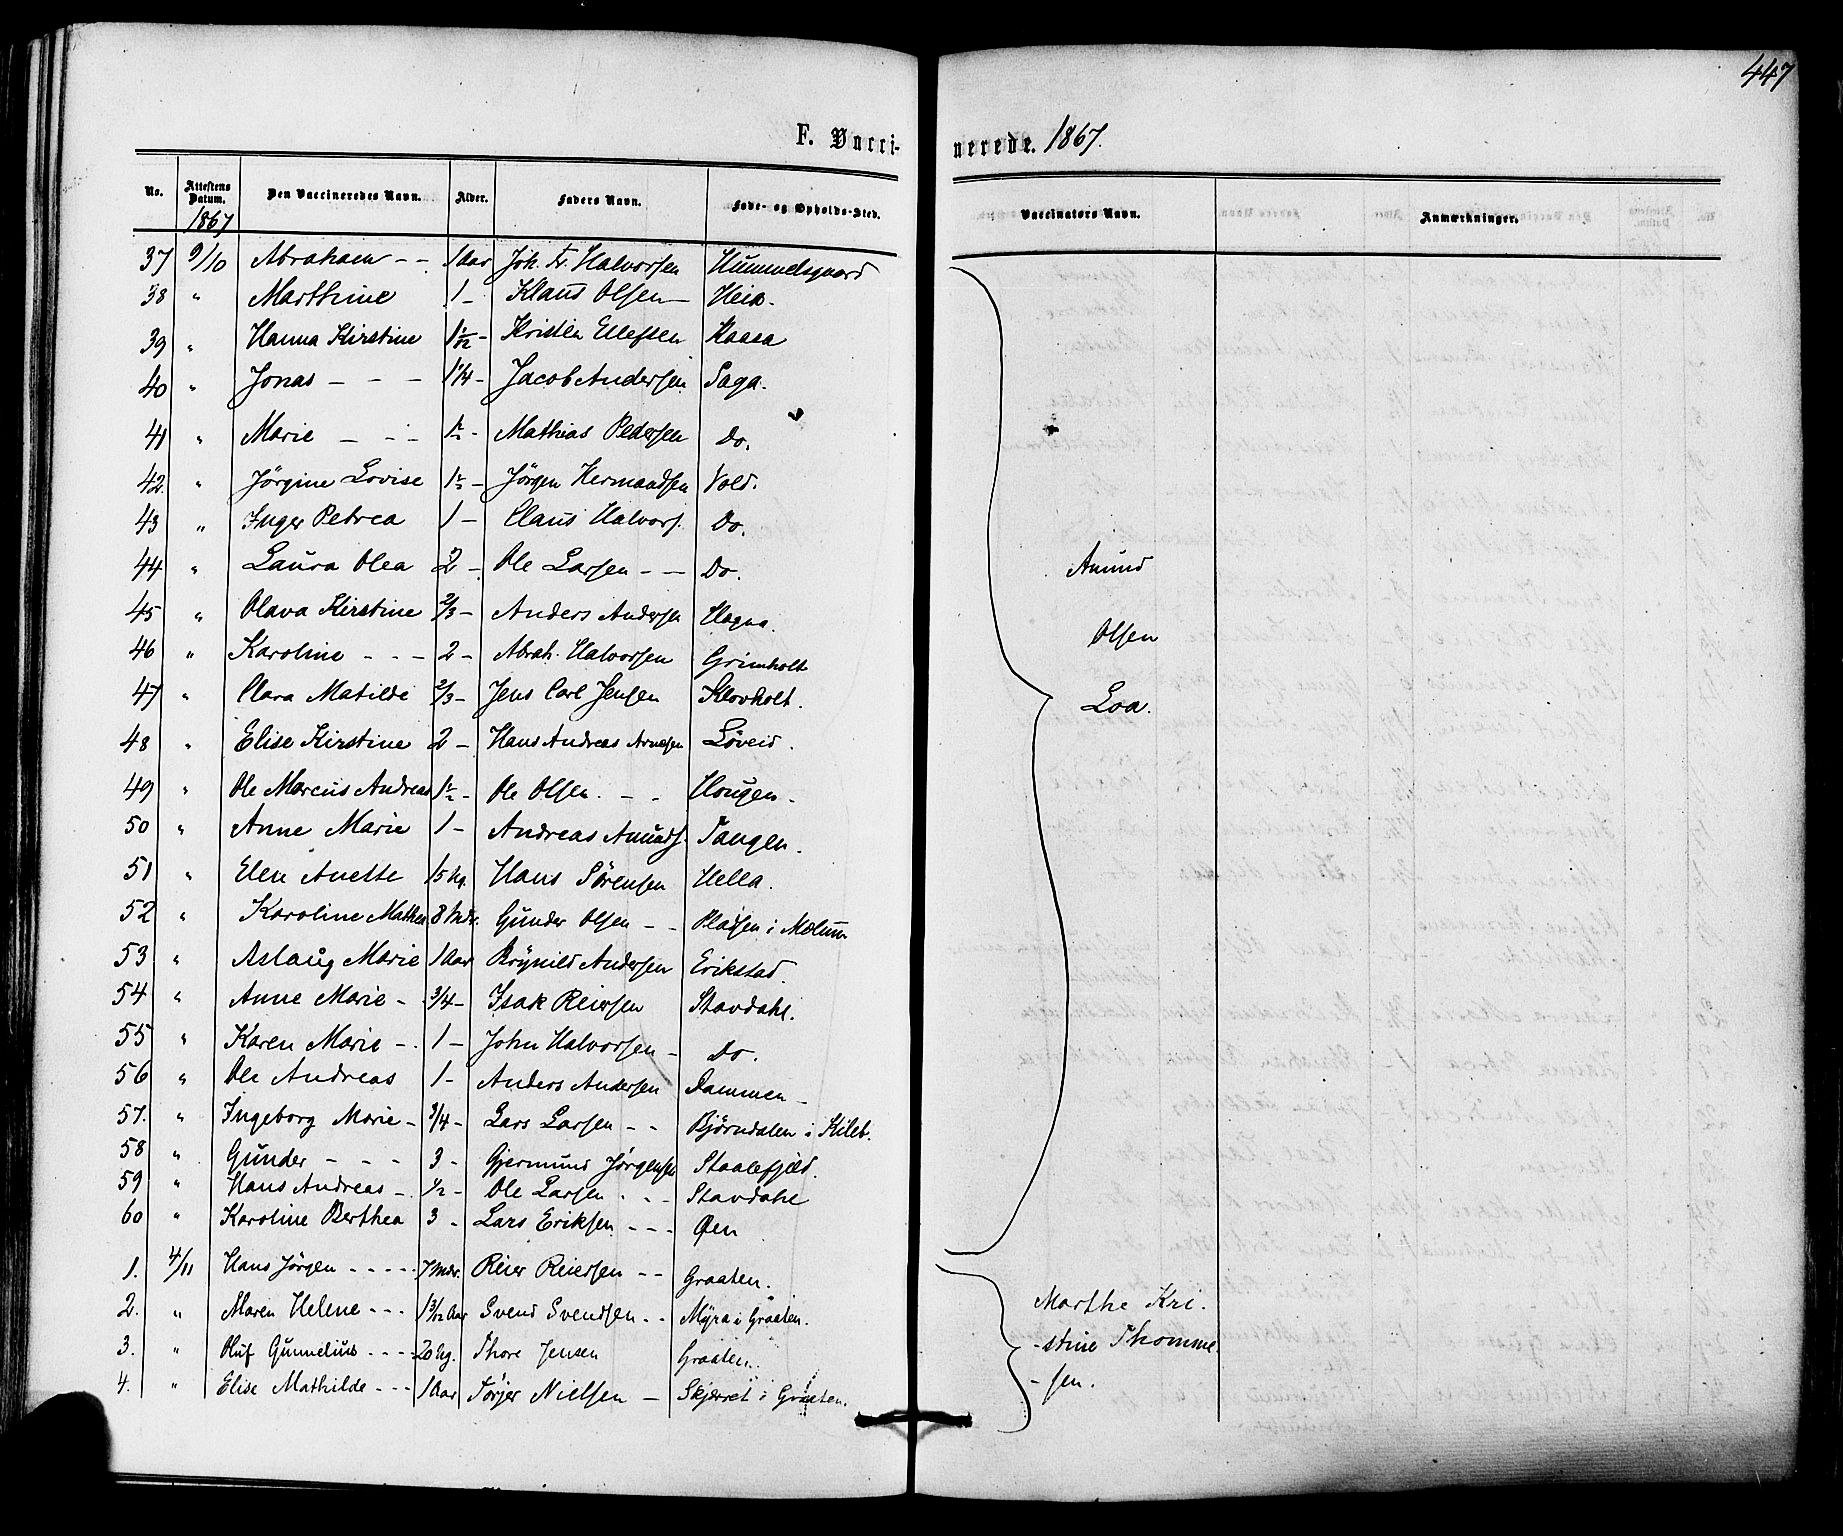 447
F. Vacci- nerede. 1867.
No. Attestens Datum. Den Vaccineredes Navn. Alder. Faders Navn. Føde- og Opholds-Sted. Vaccinators Navn. Anmærkninger.
1867
37 9/10 Abraham - - 1 Aar Joh. Fr. Halvorsen Hummelsgaard
38 " Marthine 1 - Klaus Olsen - Heia.
39 " Hanna Kirstine 1 1/12 - Kristen Ellefsen Raasa
40 " Jonas - - - 1 1/4 - Jacob Andersen Saga.
41 " Marie - - - 1/2 - Mathias Pedersen Do.
42. " Jørgine Lovise 1 1/2 - Jørgen Hermandsen Vold.
43 " Inger Petrea 1 - Claus Halvors. Do.
44 " Laura Olea 2 - Ole Larsen - - Do.
45 " Olava Kirstine 2/3 - Anders Andersen Hagna.
46 " Karoline - - - 2 - Abrah. Halvorsen Grimholt
47 " Clara Matilde 2/3 - Jens Carl Jensen Klovholt.
48 " Elise Kirstine 2 - Hans Andreas Arnesen Løveid.
49 " Ole Marcus Andreas 1 1/2 - Ole Olsen. - - Hougen.
50 " Anne Marie 1 - Andreas Amunds. Tangen.
51 " Elen Anette 15 Ug. Hans Sørensen Hella.
52 " Karoline Mathea 8 Mdr. Gunder Olsen - - Pladsen i Mælum
53 " Aslaug Marie 1 Aar Brynild Andersen Erikstad.
54 " Anne Marie - 3/4 - Isak Reiersen Stavdahl.
55 " Karen Marie - . 1 - John Halvorsen - Do.
56 " Ole Andreas 1 - Anders Andersen Dammen -
57. " Ingeborg Marie - 3/4 - Lars Larsen - - Bjørndalen i Kileb.
58 " Gunder - - - 3 - Gjermund Jørgensen Staalefjeld.
59 " Hans Andreas - 1/2 - Ole Larsen. - - Stavdahl
60 " Karoline Berthea 3 - Lars Eriksen - - - Øen
Amund
Olsen
Loa.
1. 4/11 Hans Jørgen - - - - 7 Mdr. Reier Reiersen - - Graaten.
2. " Maren Helene - - - 1 3/12 Aar Svend Svendsen - - Myra i Graaten.
3. " Oluf Gunnelius - - - - 20 Ug. Thore Jensen Graaten.
4. " Elise Mathilde - - - 1 Aar Tørjer Nielsen - Skjerret i Graaten.
Marthe Kri-
-stine Thomme-
-sen.